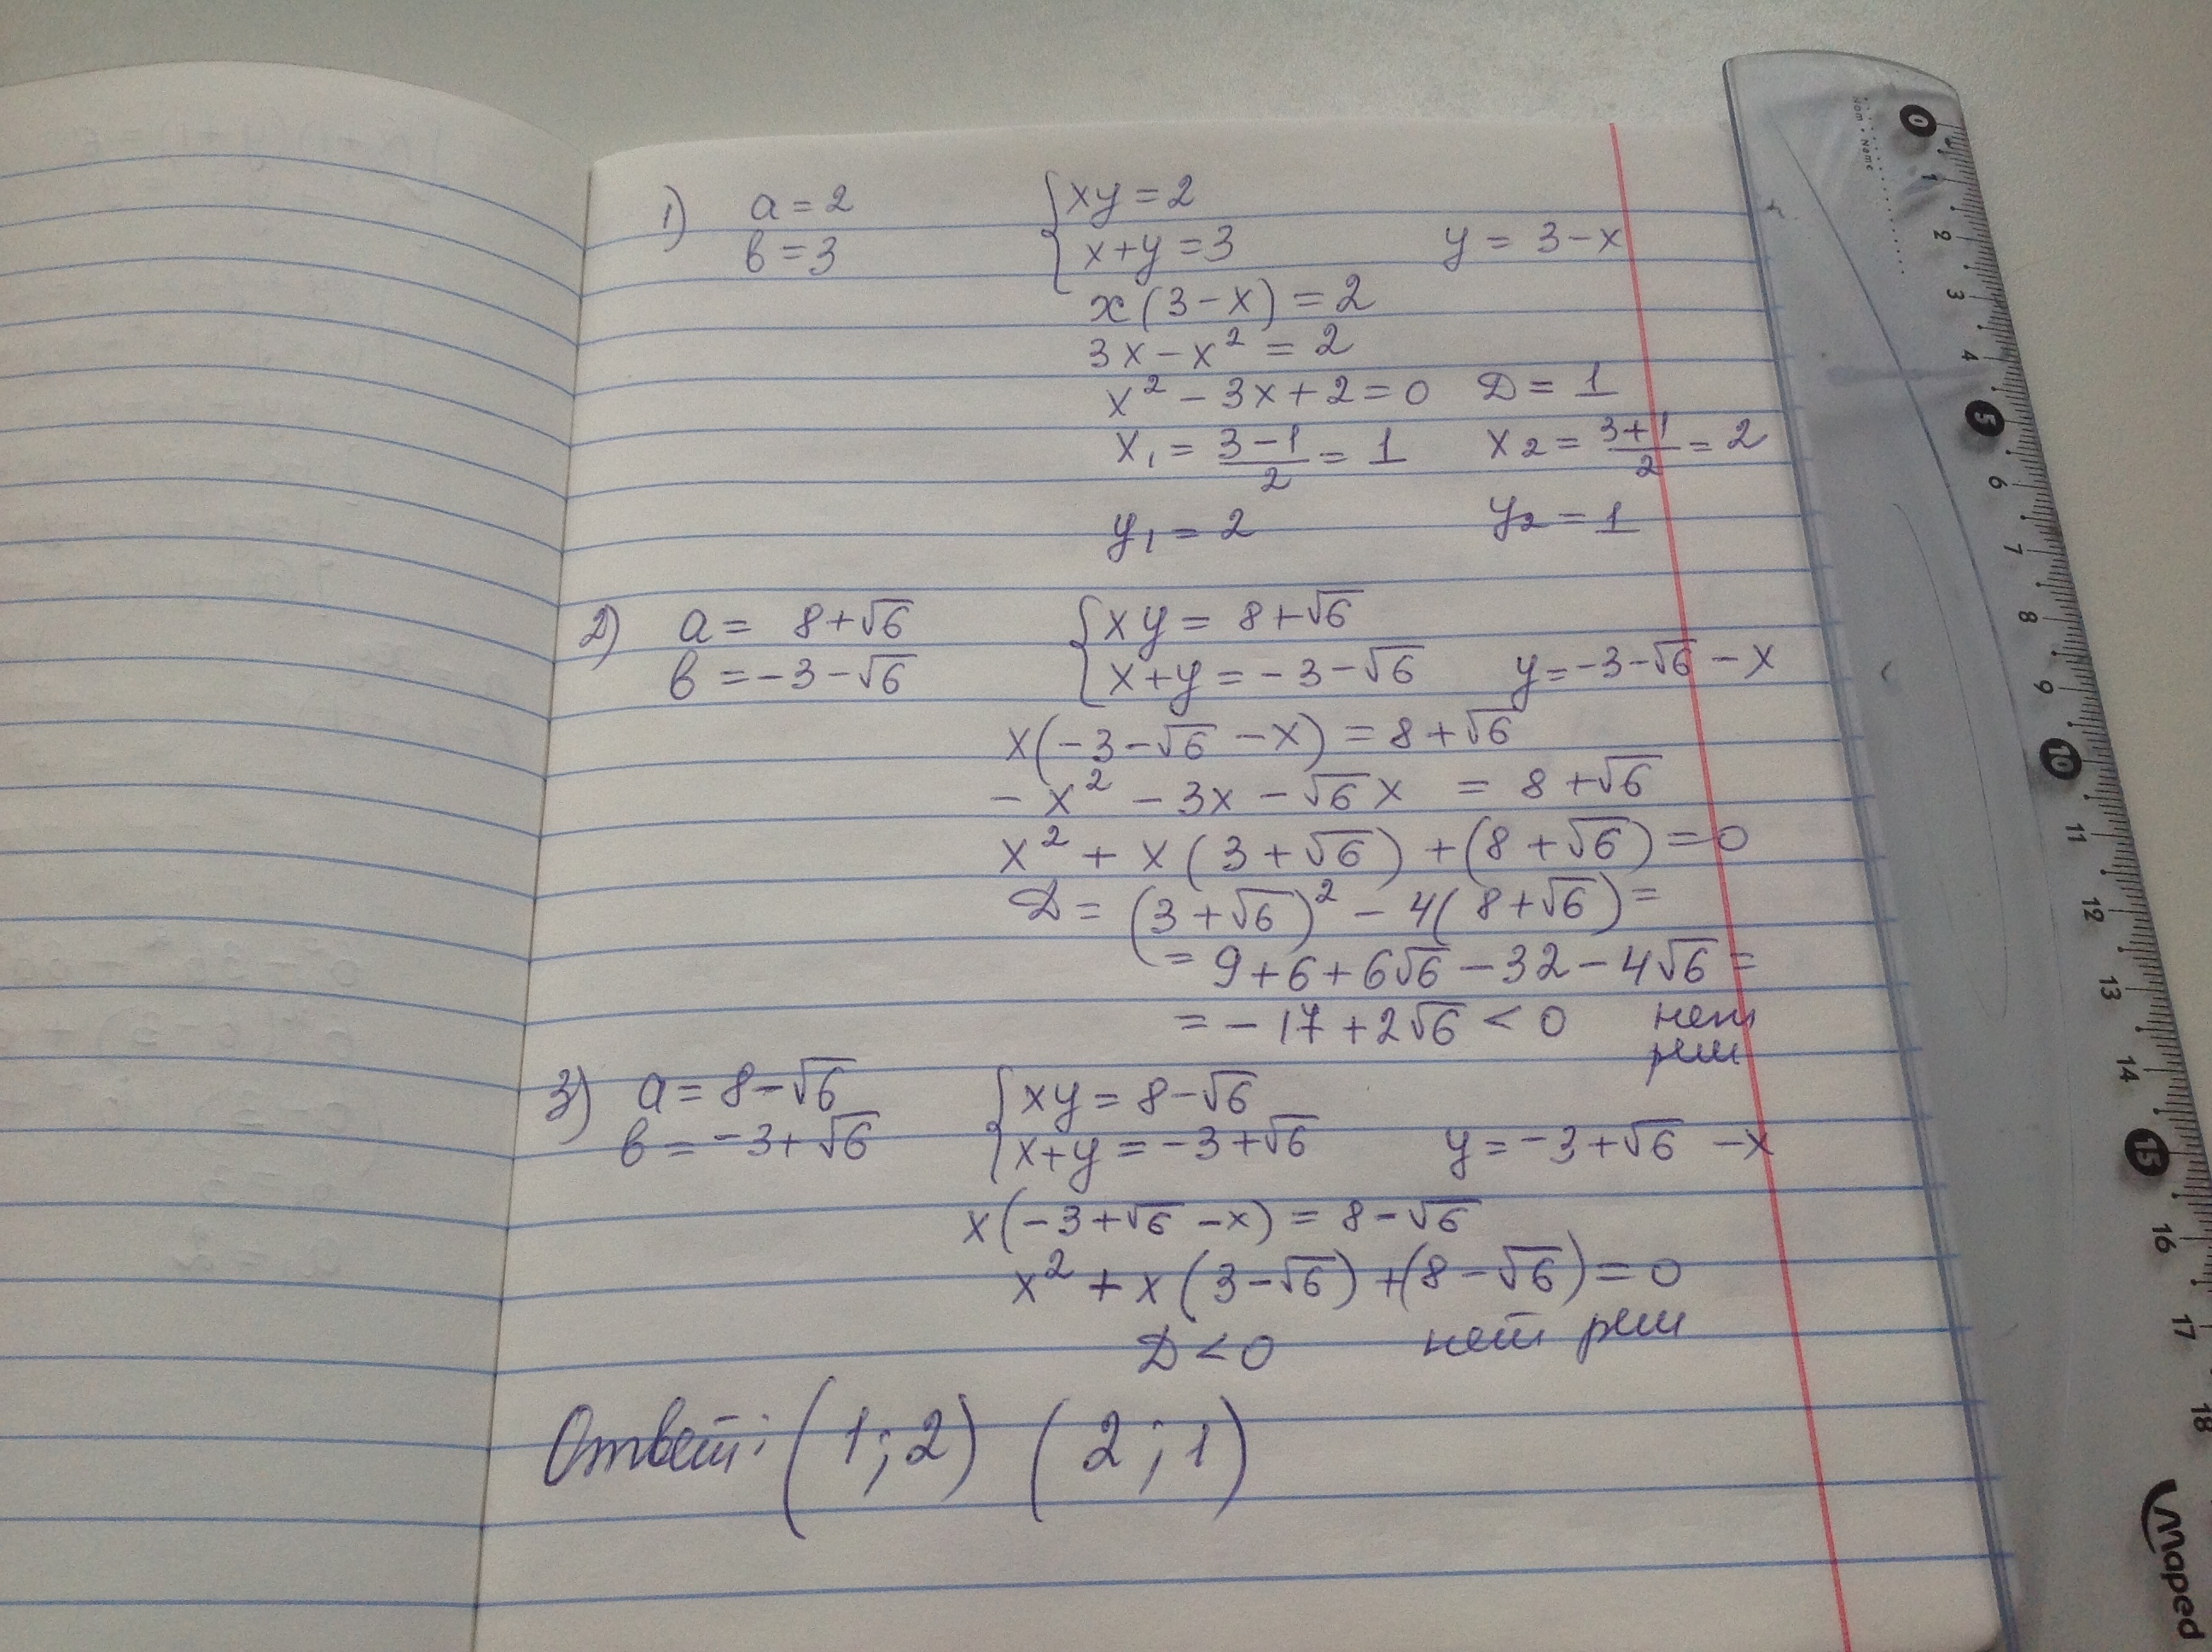 1) a = 2 { xy = 2
b = 3 x+y = 3 y = 3-x
x(3-x) = 2
3x - x² = 2
x² - 3x + 2 = 0 D = 1
x₁ = (3-1)/2 = 1 x₂ = (3+1)/2 = 2
y₁ = 2 y₂ = 1
2) a = 8+√6 { xy = 8+√6
b = -3-√6 x+y = -3-√6 y = -3-√6 - x
x(-3-√6 -x) = 8+√6
-x² - 3x - √6 x = 8+√6
x² + x(3+√6) + (8+√6) = 0
D = (3+√6)² - 4(8+√6) =
= 9+6+6√6 - 32 - 4√6 =
= -17 + 2√6 < 0 нет
реш
3) a = 8-√6 { xy = 8-√6
b = -3+√6 x+y = -3+√6 y = -3+√6 - x
x(-3+√6 -x) = 8-√6
x² + x(3-√6) + (8-√6) = 0
D < 0 нет реш
Ответ: (1; 2) (2; 1)
Nom • Name
0 1 2 3 4 5 6 7 8 9 10 11 12 13 14 15 16 17 18
Maped